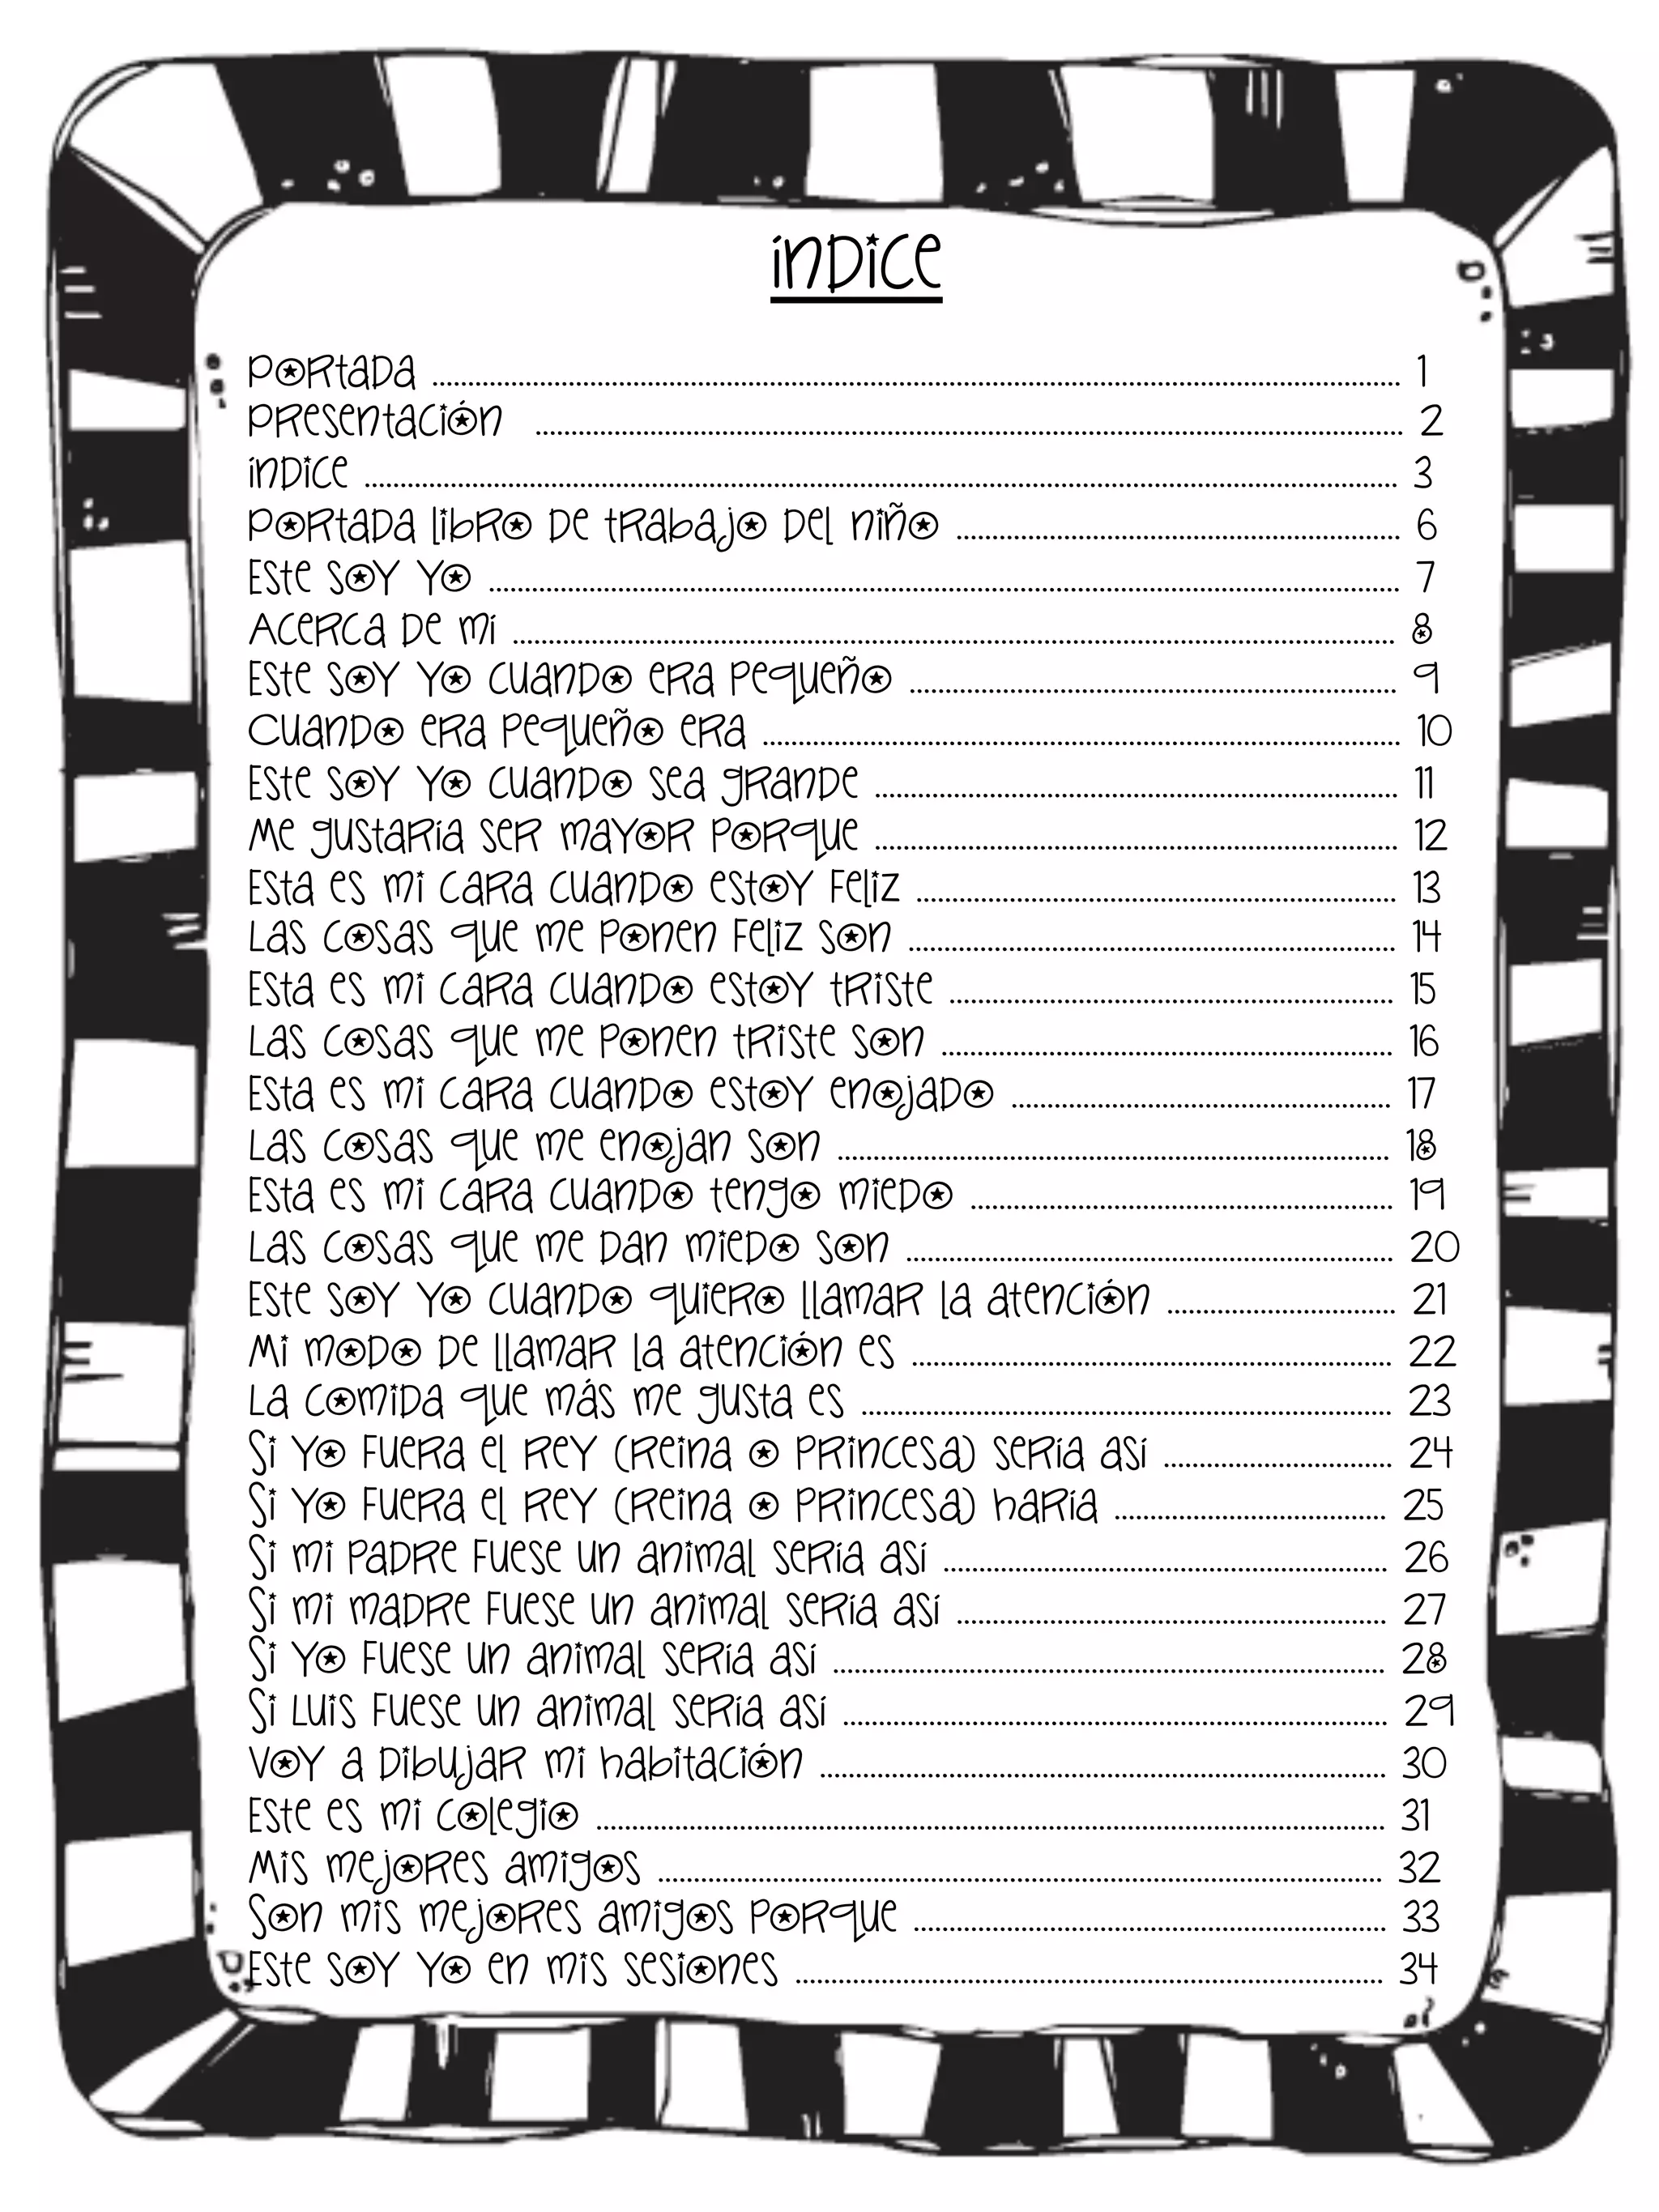 índice
Portada ........................................ 1
Presentación ........................................ 2
índice ........................................ 3
Portada libro de trabajo del niño ........................................ 6
Este soy yo ........................................ 7
Acerca de mí ........................................ 8
Este soy yo cuando era pequeño ........................................ 9
Cuando era pequeño era ........................................ 10
Este soy yo cuando sea grande ........................................ 11
Me gustaría ser mayor porque ........................................ 12
Esta es mi cara cuando estoy feliz ........................................ 13
Las cosas que me ponen feliz son ........................................ 14
Esta es mi cara cuando estoy triste ........................................ 15
Las cosas que me ponen triste son ........................................ 16
Esta es mi cara cuando estoy enojado ........................................ 17
Las cosas que me enojan son ........................................ 18
Esta es mi cara cuando tengo miedo ........................................ 19
Las cosas que me dan miedo son ........................................ 20
Este soy yo cuando quiero llamar la atención ........................................ 21
Mi modo de llamar la atención es ........................................ 22
La comida que más me gusta es ........................................ 23
Si yo fuera el rey (reina o princesa) sería así ........................................ 24
Si yo fuera el rey (reina o princesa) haría ........................................ 25
Si mi padre fuese un animal sería así ........................................ 26
Si mi madre fuese un animal sería así ........................................ 27
Si yo fuese un animal sería así ........................................ 28
Si Luis fuese un animal sería así ........................................ 29
Voy a dibujar mi habitación ........................................ 30
Este es mi colegio ........................................ 31
Mis mejores amigos ........................................ 32
Son mis mejores amigos porque ........................................ 33
Este soy yo en mis sesiones ........................................ 34